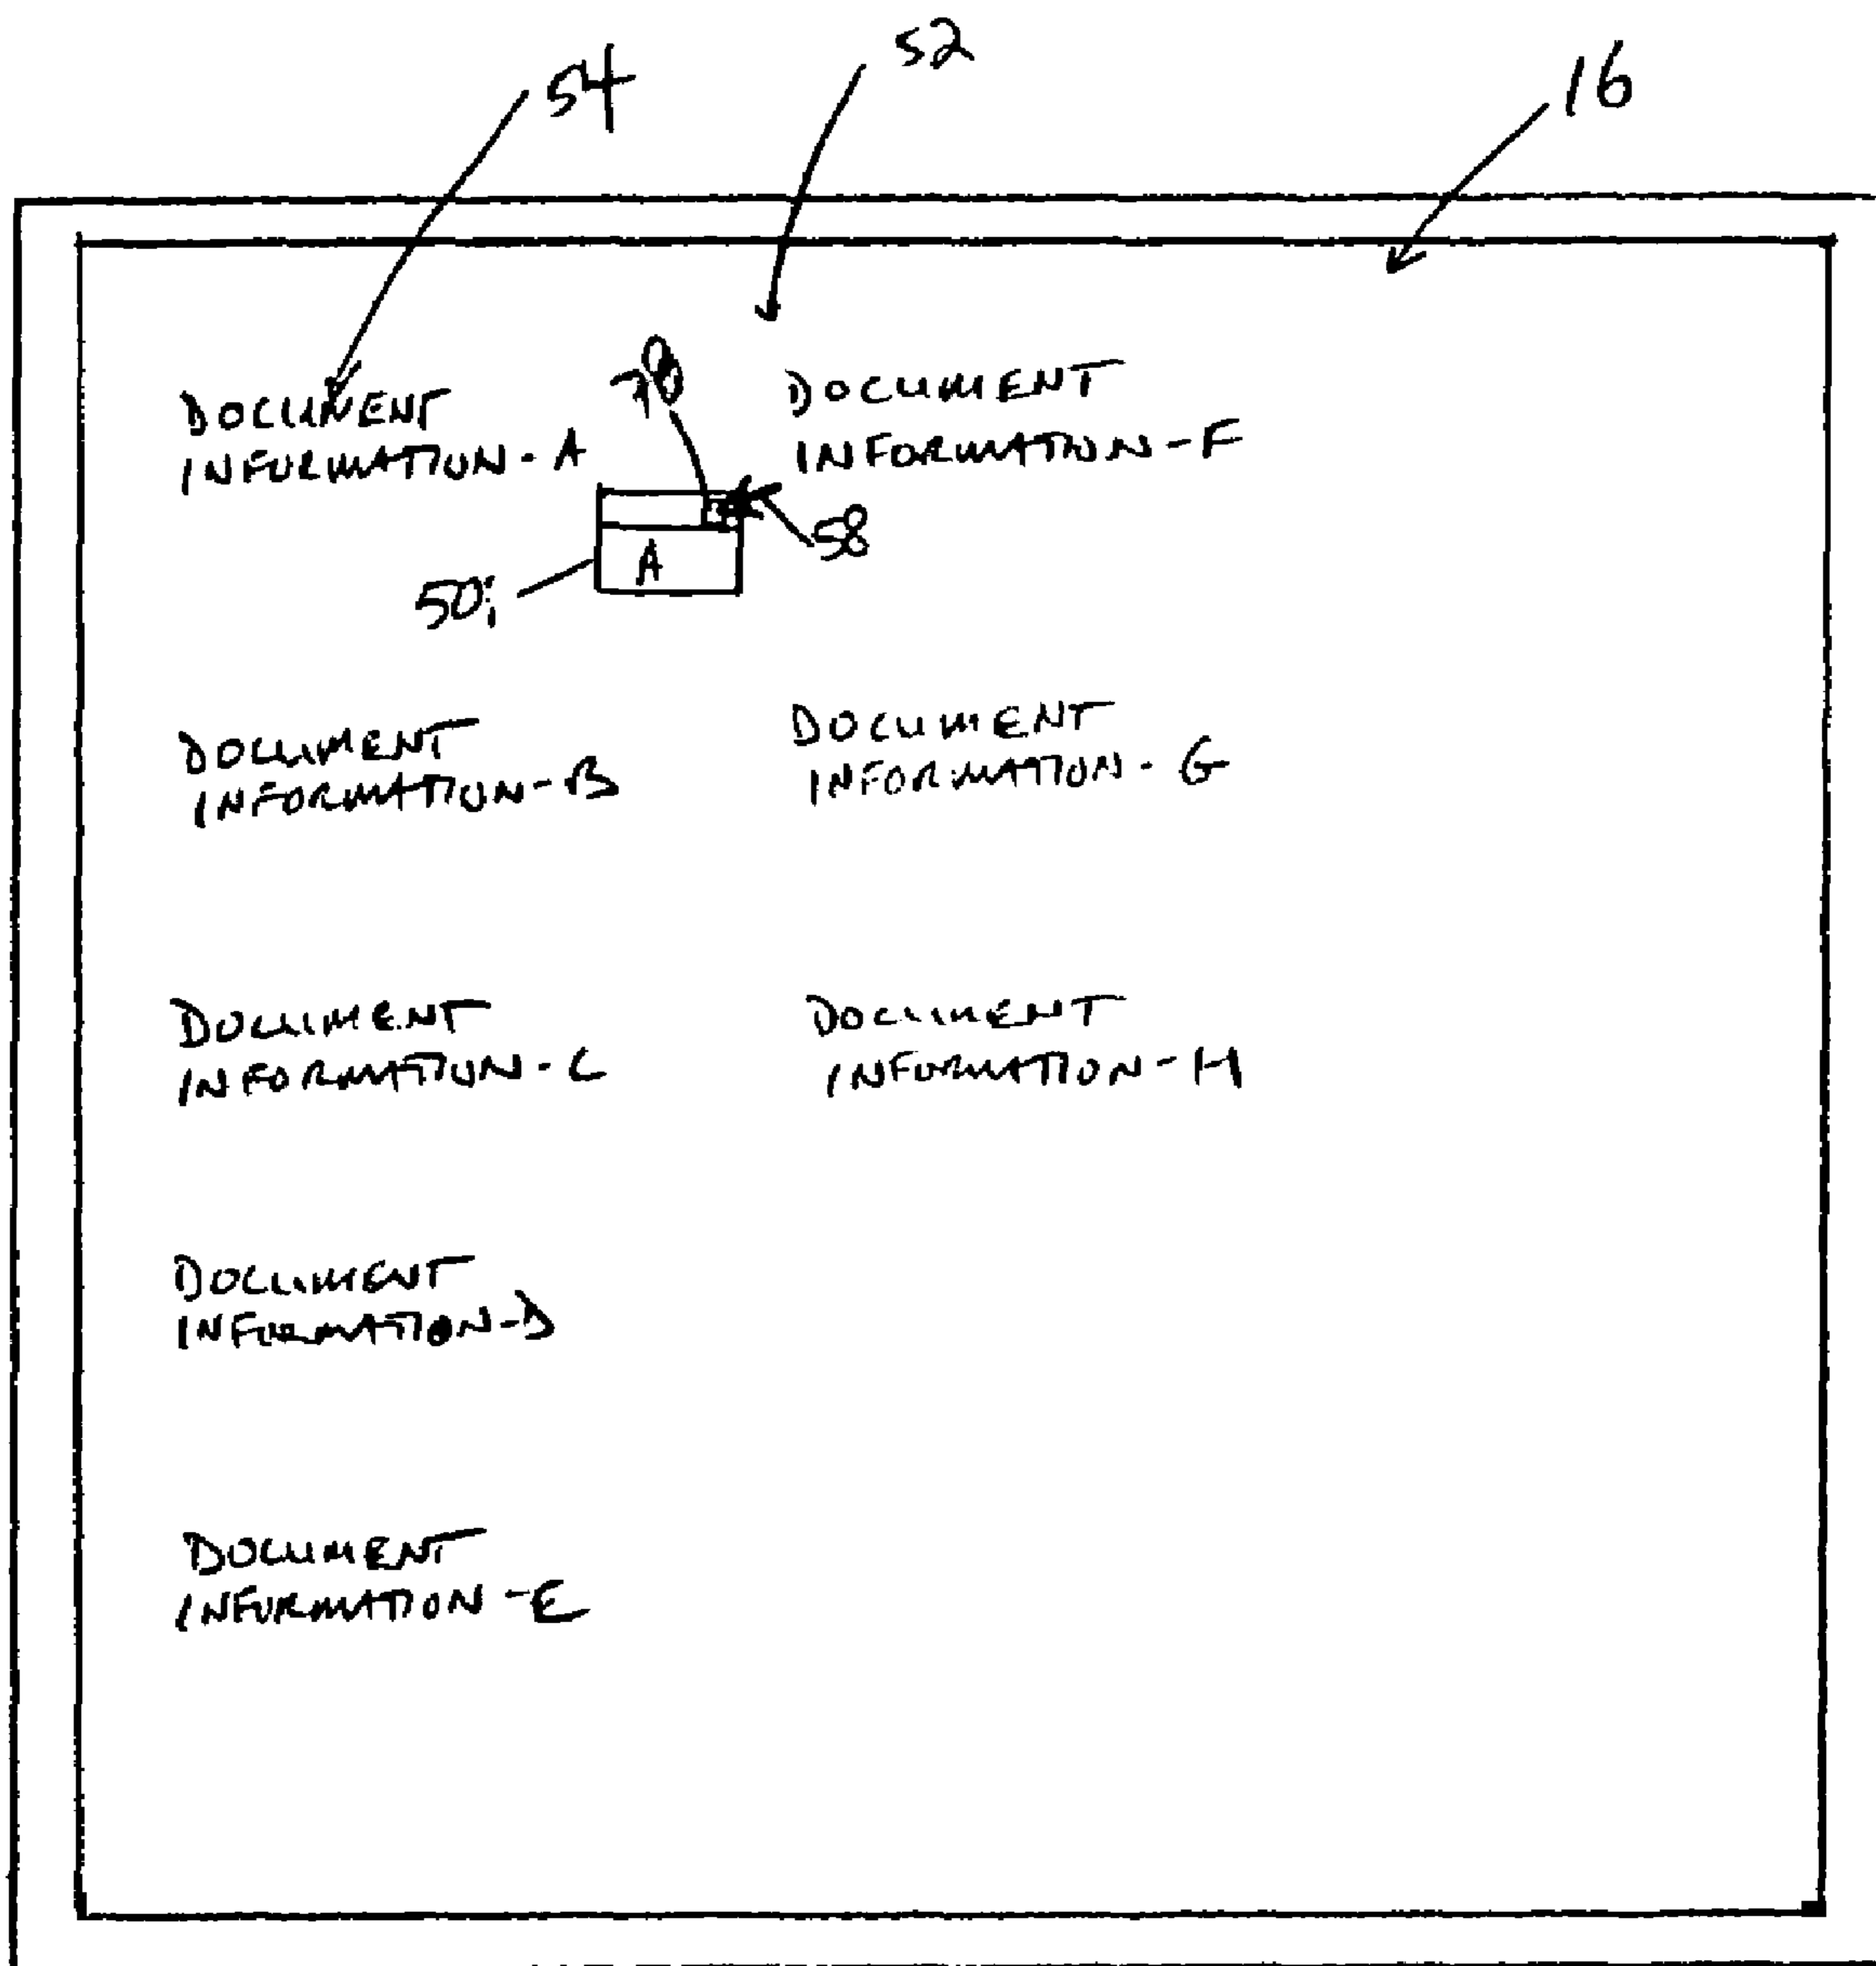 54
52
16
DOCUMENT
INFORMATION - A
DOCUMENT
INFORMATION - F
58
A
50i
DOCUMENT
INFORMATION - B
DOCUMENT
INFORMATION - G
DOCUMENT
INFORMATION - C
DOCUMENT
INFORMATION - H
DOCUMENT
INFORMATION - D
DOCUMENT
INFORMATION - E